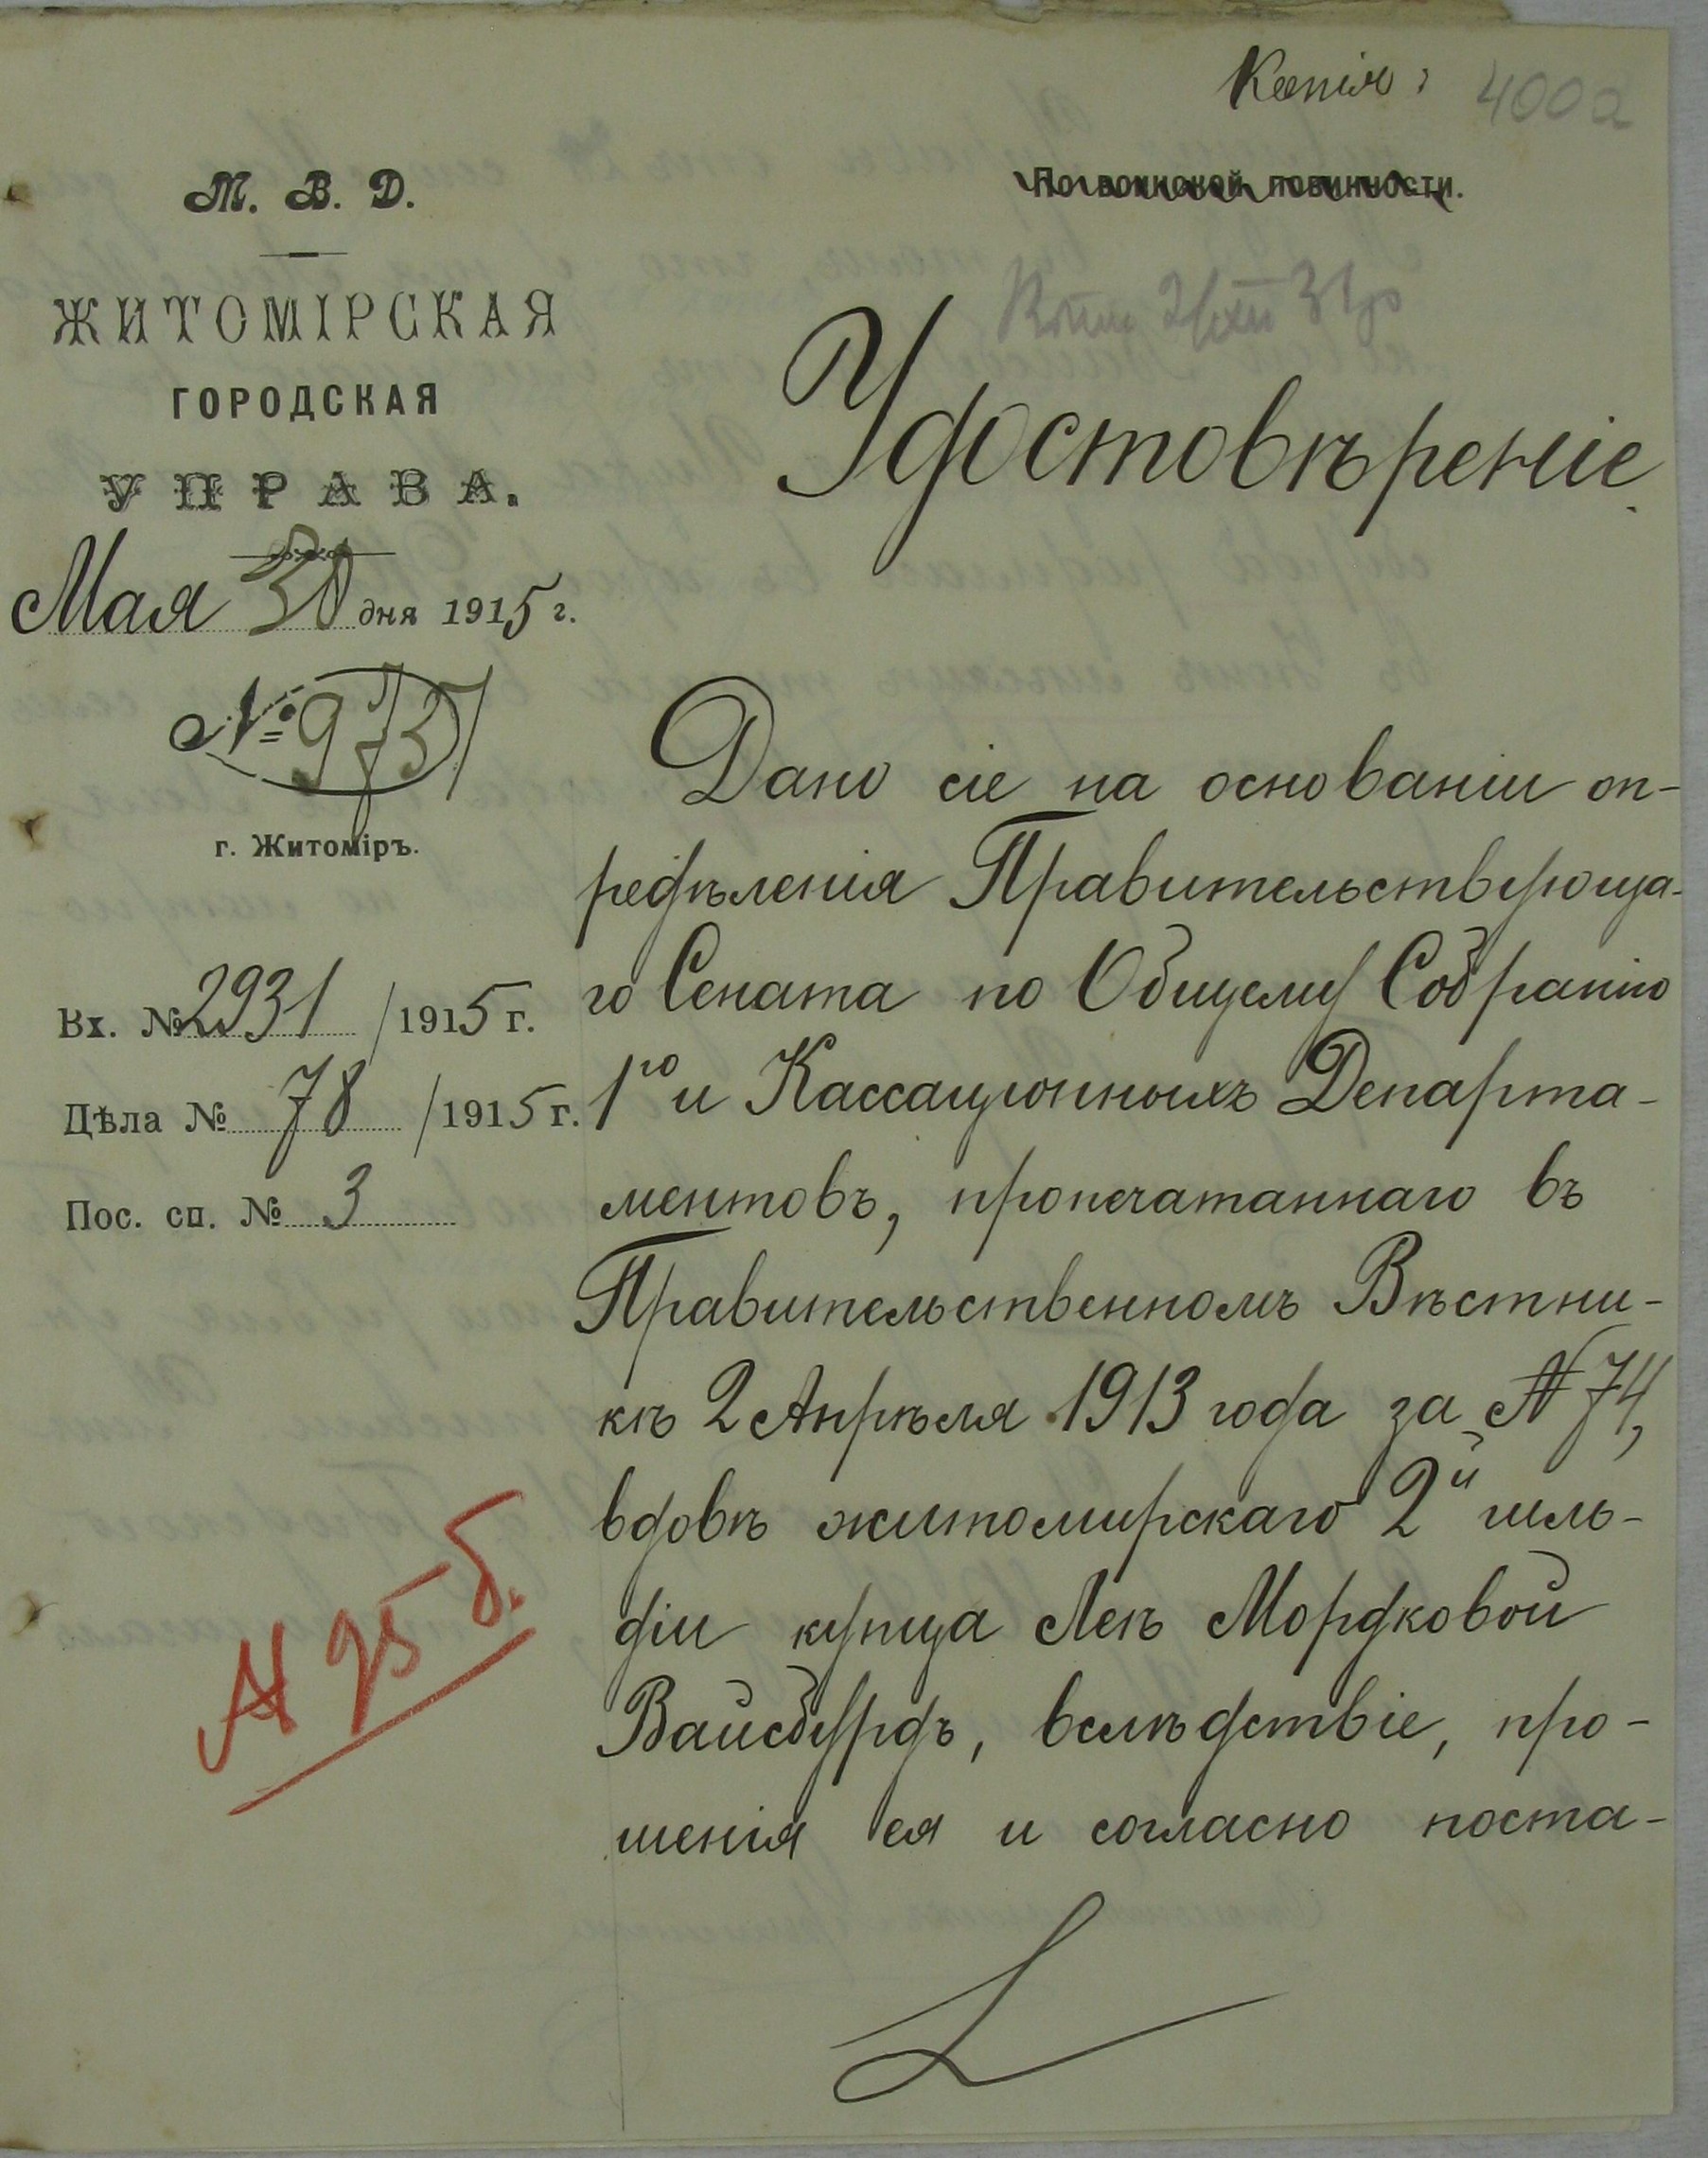 Копія:
400а
М. В. Д.
По воинской повинности.
ЖИТОМІРСКАЯ
ГОРОДСКАЯ
УПРАВА.
Мая 30 дня 1915 г.
№
г. Житоміръ.
Вх. № 2931 / 1915 г.
Дѣла № 78 / 1915 г.
Пос. сп. № 3
№ 95 б.
Удостовѣреніе.
Дано сіе на основаніи оп-
редѣленія Правительствующа-
го Сената по Общему Собранію
1го и Кассаціонныхъ Департа-
ментовъ, пропечатаннаго въ
Правительственномъ Вѣстни-
кѣ 2 Апрѣля 1913 года за № 74,
вдовѣ житомирскаго 2й гиль-
діи купца Леѣ Мордковой
Вайсбурдъ, вслѣдствіе, про-
шенія ея и согласно поста-